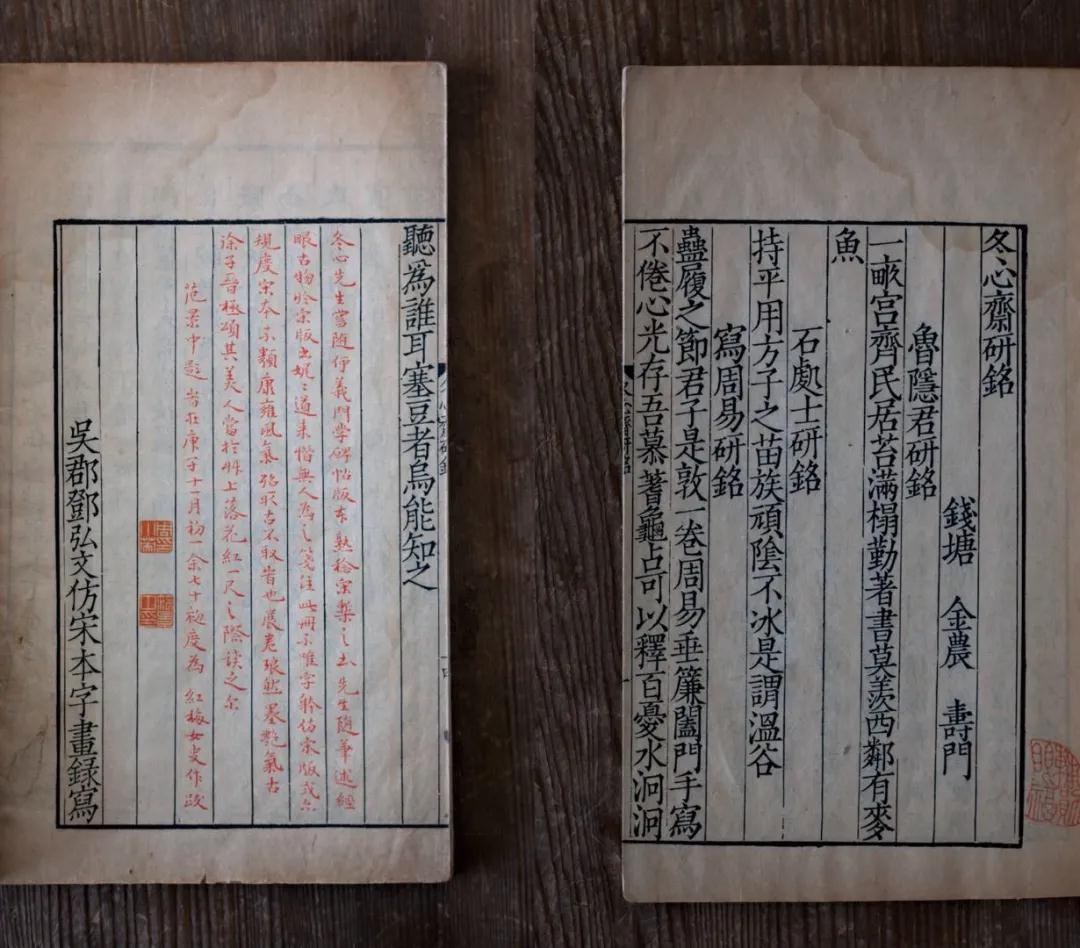 冬心齋研銘
錢塘 金農 壽門
魯隱君研銘
一畝宮齊民居苔滿榻勤著書莫羨西鄰有麥
魚
石處士研銘
持平用方子之苗族頑陰不冰是謂溫谷
寫周易研銘
蠱履之節君子是敦一卷周易垂簾闔門手寫
不倦心光存吾慕蓍龜占可以釋百憂水洄洄
冬心齋研銘
聽爲誰耳塞豆者烏能知之
冬心先生嘗随何義門學碑帖版本熟稔宋槧之出先生随筆述經
眼古物於宋版娓〻道来惜無人為之箋注此冊不唯字躰仿宋版式
規度宋本不類康雍風氣古不取者也展卷琅然墨艷氣古
涂子晉極頌其美人當於冊上落花紅一尺之際談之尔
范景中題 庚子十一月初一余七十初度為紅梅女史作跋
吳郡鄧弘文仿宋本字畫錄寫